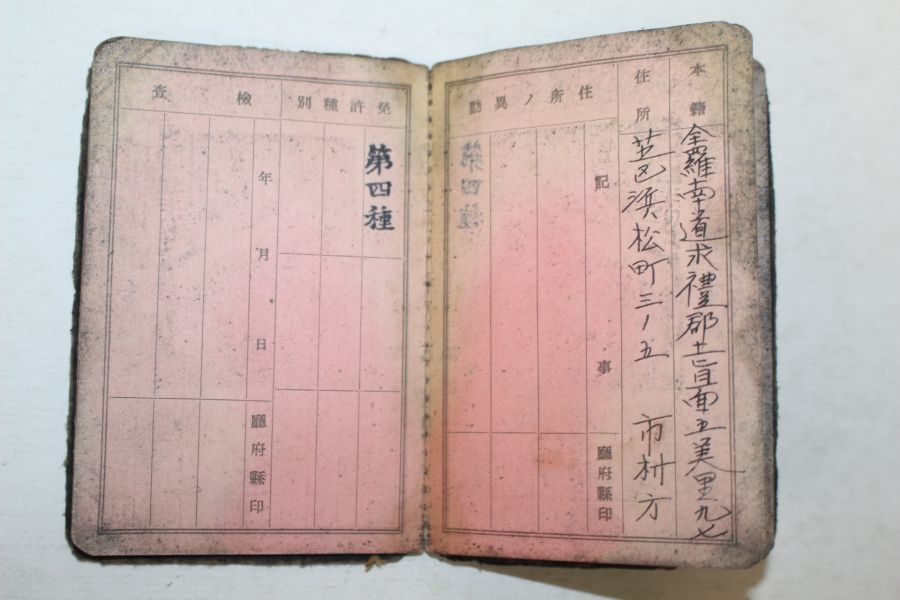 本籍
全羅南道求禮郡土旨面五美里九七
住所
芝区浜松町三ノ五 市村方
住所ノ異動
記事
廳府縣印
免許種別
第四種
檢査
年月日
廳府縣印